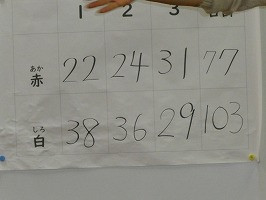 1 2 3
あか
赤 22 24 31 77
しろ
白 38 36 29 103